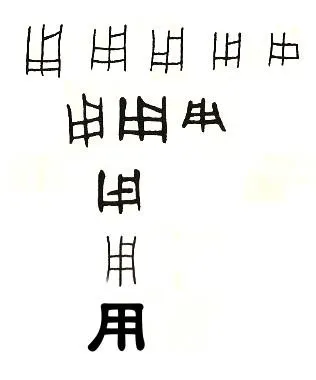 用 用 用 用 用
用 用 用
用
用
用